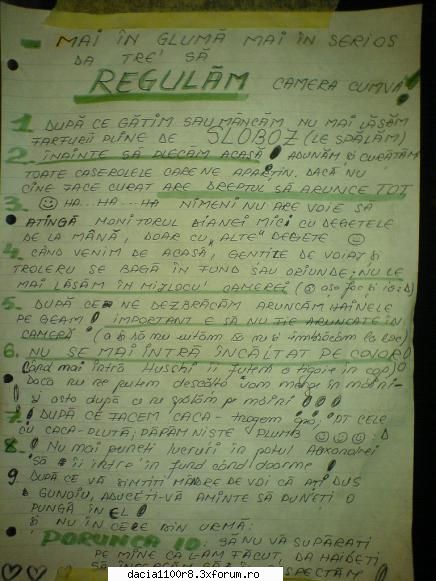 MAI ÎN GLUMĂ MAI ÎN SERIOS
DA TRE' SĂ
REGULĂM CAMERA CUMVA!
1. DUPĂ CE GĂTIM SAU MÂNCĂM NU MAI LĂSĂM
FARFURII PLINE DE SLOBOZ (LE SPĂLĂM)
2. ÎNAINTE SĂ PLECĂM ACASĂ ADUNĂM ȘI CURĂȚĂM
TOATE CASEROLELE CARE NE APARȚIN. DACĂ NU
CINE FACE CURAT ARE DREPTUL SĂ ARUNCE TOT
3. ☺ HA...HA...HA NIMENI NU ARE VOIE SĂ
ATINGĂ MONITORUL DIANEI MICI CU DEGETELE
DE LA MÂNĂ, DOAR CU "ALTE" DEGETE ☺
4. CÂND VENIM DE ACASĂ, GENȚILE DE VOIAJ ȘI
TROLERU SE BAGĂ ÎN FUND SAU ORIUNDE; NU LE
MAI LĂSĂM ÎN MIJLOCU' CAMEREI (☺ așa fac și io :D)
5. DUPĂ CE NE DEZBRĂCĂM ARUNCĂM HAINELE
PE GEAM IMPORTANT E SĂ NU FIE ARUNCATE ÎN
CAMERĂ (a și să nu uităm să nu și îmbrăcăm la loc)
6. NU SE MAI INTRĂ ÎNCĂLȚAT PE COVOR
Când mai intră Husshi îi futem o tigaie în cap
Dacă nu ne putem descălța vom merge în mâini
și asta după ce ne spălăm pe mâini
7. DUPĂ CE FACEM CACA - tragem apa; PT CELE
CU CACA-PLUTĂ; PĂPĂM NIȘTE PLUMB ☺☺☺ :D
8. Nu mai puneți lucruri în patul Alexandrei
să îi intre în fund când doarme
9. DUPĂ CE VĂ SIMȚIȚI MÂNDRE DE VOI CĂ AȚI DUS
GUNOIU, ADUCEȚI-VĂ AMINTE SĂ PUNEȚI O
PUNGĂ ÎN EL
ȘI NU ÎN CELE DIN URMĂ:
PORUNCA 10: SĂ NU VĂ SUPĂRAȚI
PE MINE CĂ L-AM FĂCUT, DA HAIDEȚI
SĂ
dacia1100r8.3xforum.ro